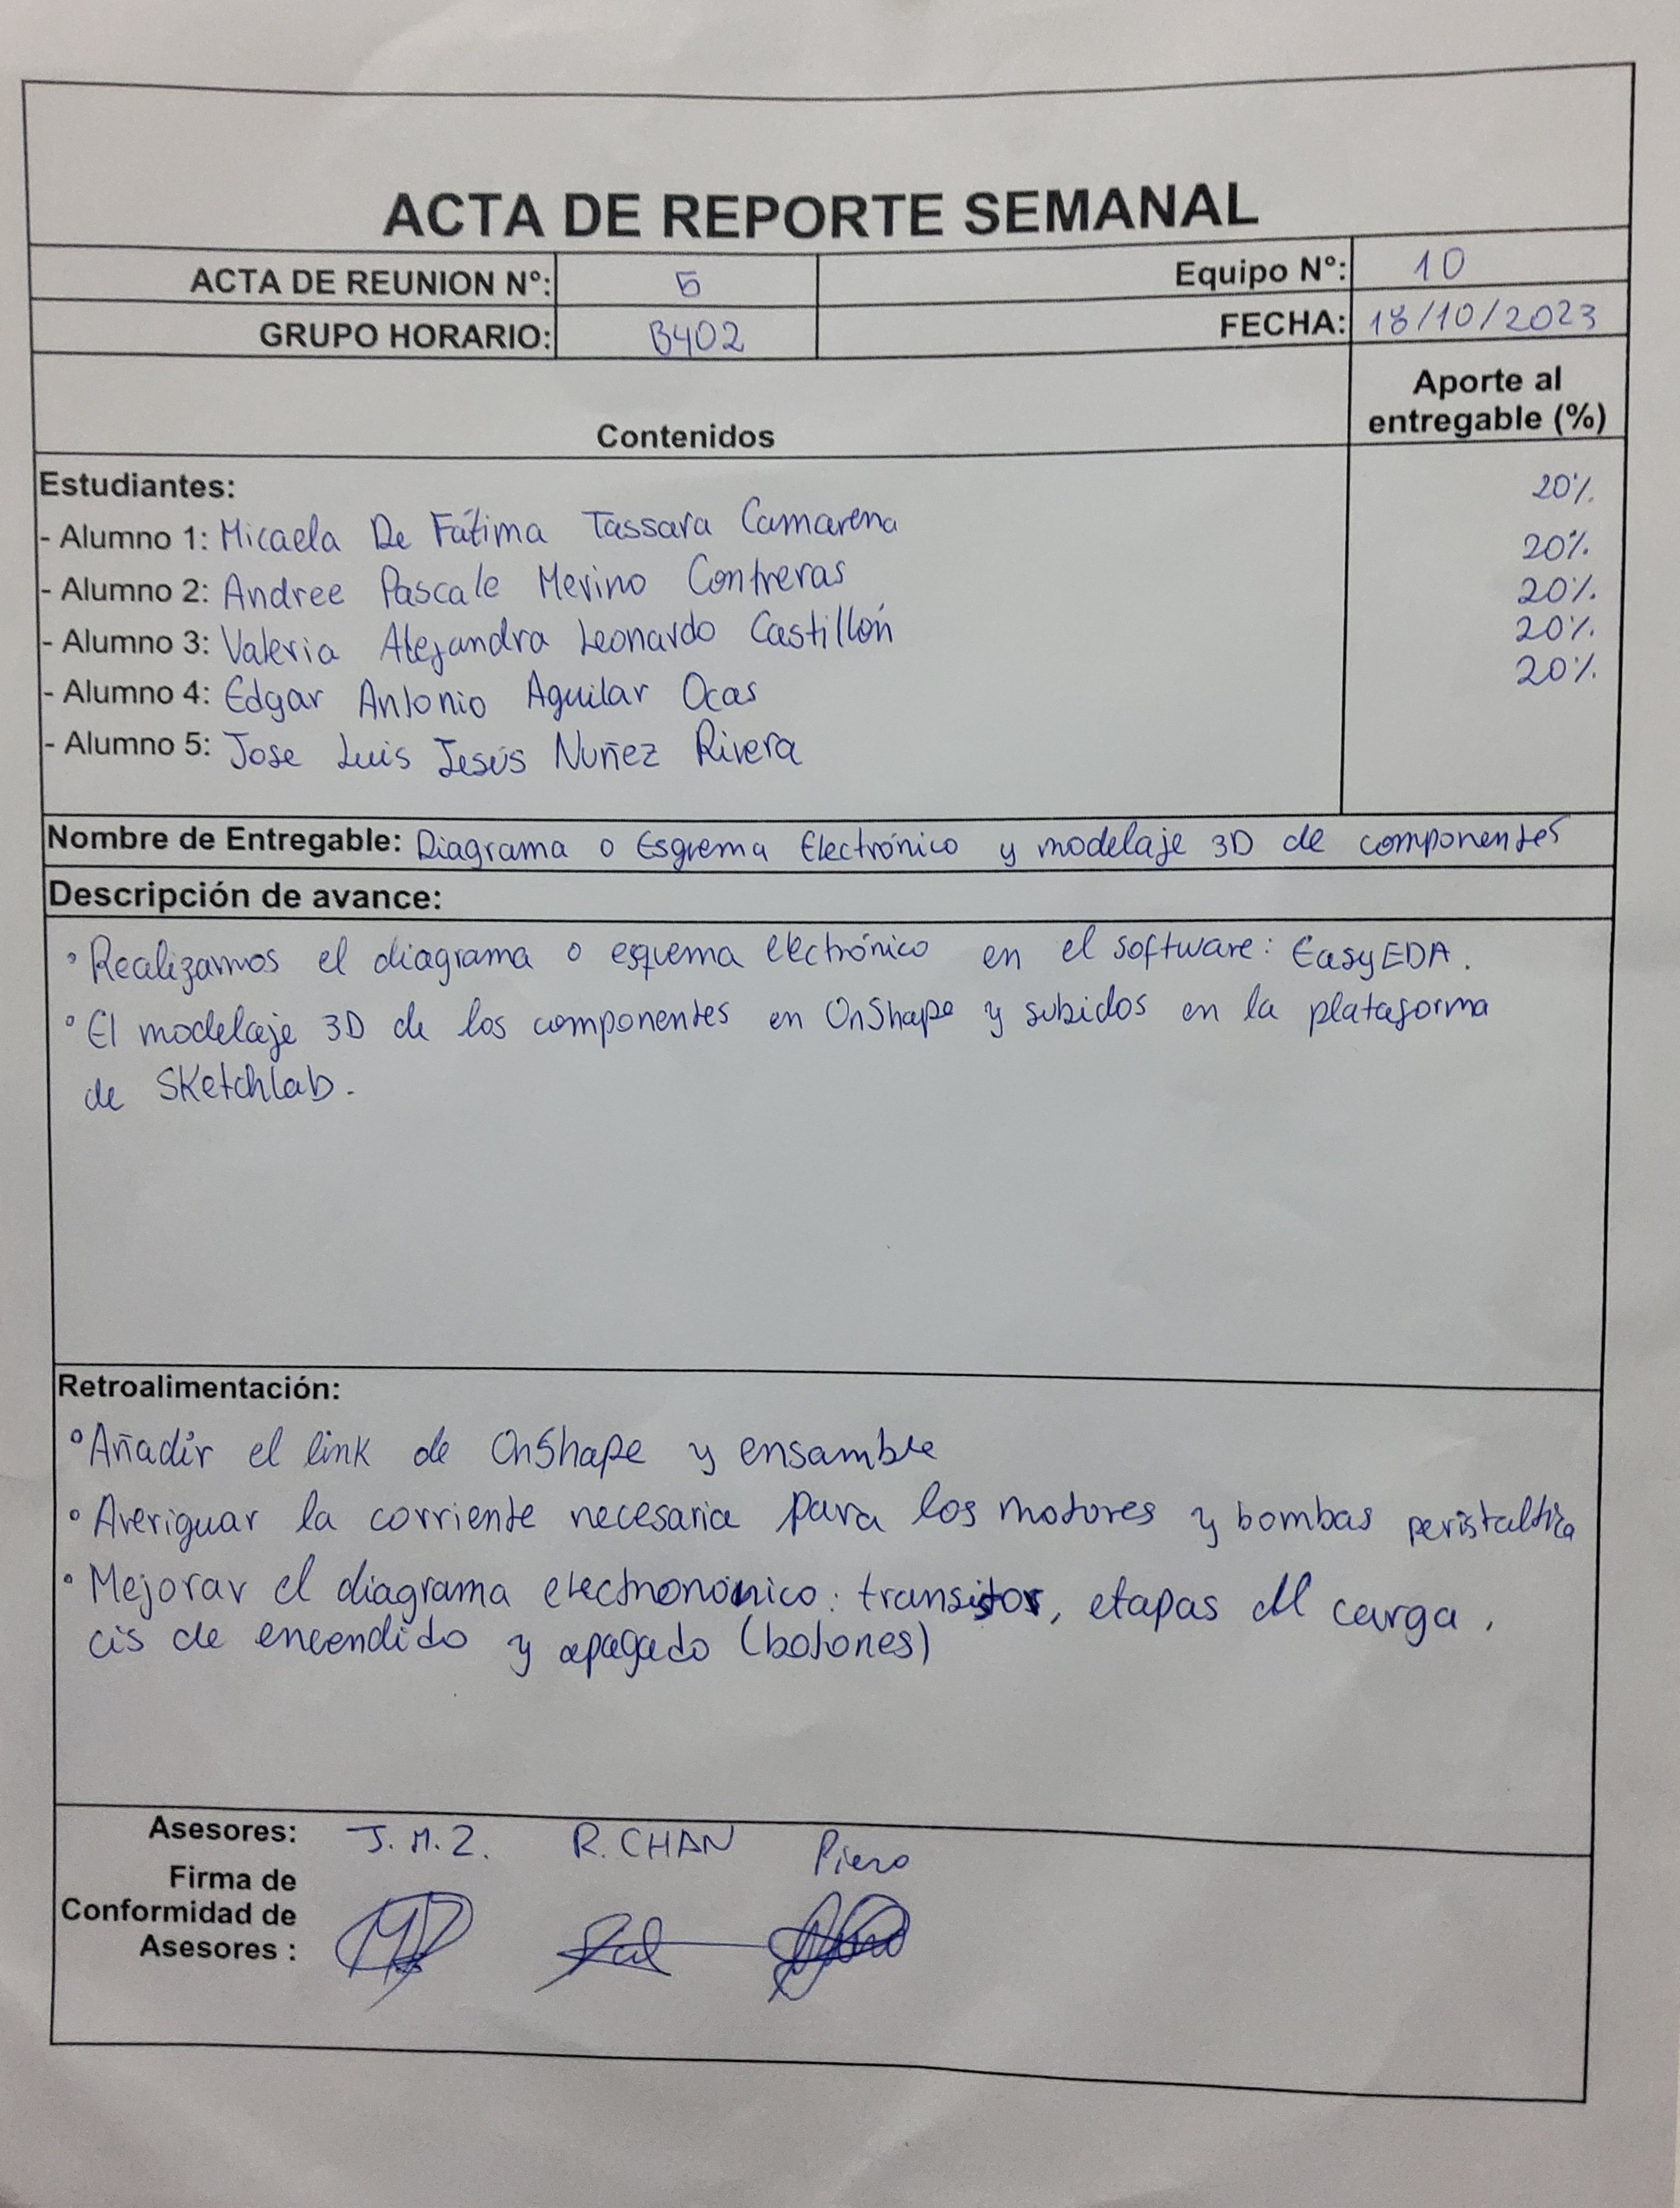 ACTA DE REPORTE SEMANAL
ACTA DE REUNION Nº: 5 Equipo Nº: 10
GRUPO HORARIO: B402 FECHA: 18/10/2023
Contenidos Aporte al entregable (%)
Estudiantes: 20%
- Alumno 1: Micaela De Fátima Tassara Camarena 20%
- Alumno 2: Andree Pascale Merino Contreras 20%
- Alumno 3: Valeria Alejandra Leonardo Castillón 20%
- Alumno 4: Edgar Antonio Aguilar Ocas 20%
- Alumno 5: Jose Luis Jesús Nuñez Rivera
Nombre de Entregable: Diagrama o Esqrema Electrónico y modelaje 3D de componentes
Descripción de avance:
• Realizamos el diagrama o esquema electrónico en el software: EasyEDA.
• El modelaje 3D de los componentes en OnShape y subidos en la plataforma
de Sketchlab.
Retroalimentación:
• Añadir el link de OnShape y ensamble
• Averiguar la corriente necesaria para los motores y bombas peristaltica
• Mejorar el diagrama : transistor, etapas carga,
de encendido y apagado (botones)
Asesores: J.M.Z. R.CHAN Piero
Firma de
Conformidad de
Asesores :